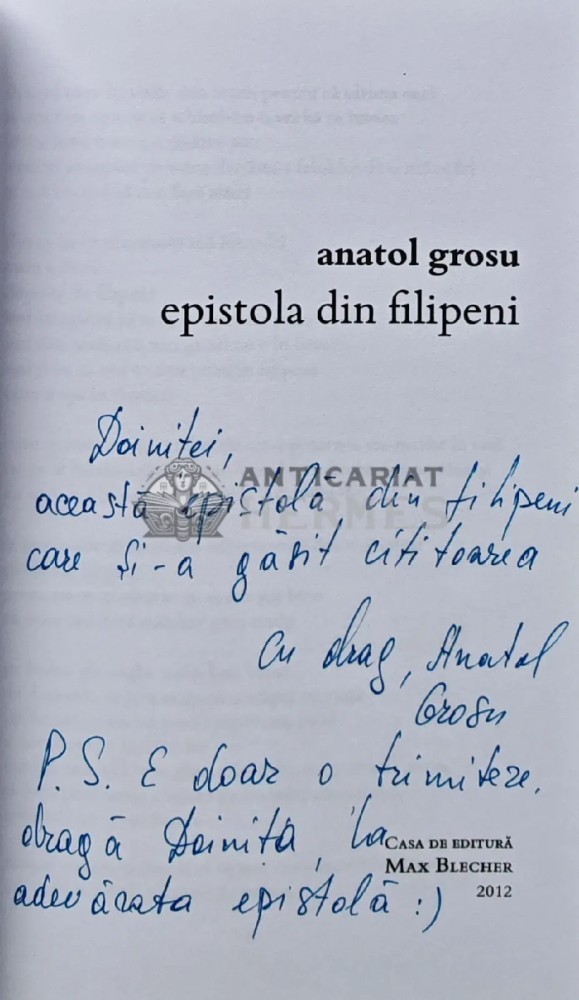 anatol grosu
epistola din filipeni
Doiniței,
ANTICARIAT
HERMES
această epistolă din filipeni
care și-a găsit cititoarea
Cu drag, Anatol
Grosu
P.S. E doar o trimitere,
dragă Doinița, la
adevărata epistolă :)
CASA DE EDITURĂ
MAX BLECHER
2012